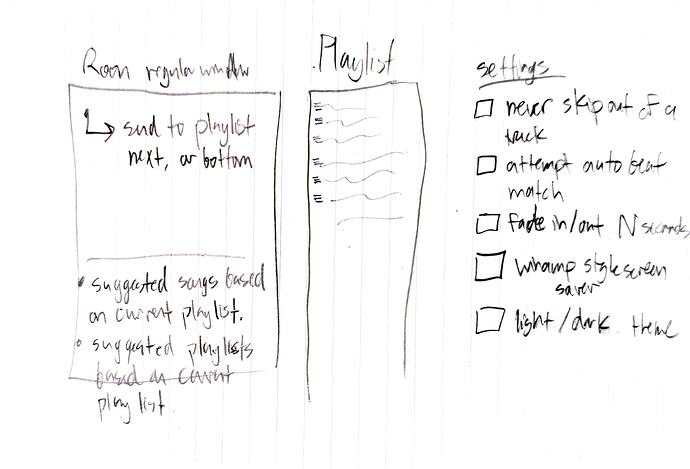 Roon regular window
send to playlist
next, or bottom
• suggested songs based
on current playlist.
• suggested playlists
based on current
playlist.
Playlist
settings
never skip out of a
track
attempt auto beat
match
fade in/out N seconds
whamp style screen
saver
light/dark theme